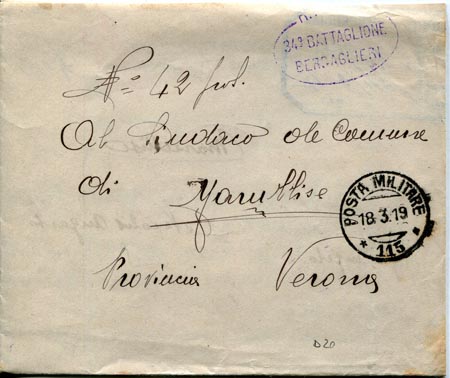 34º BATTAGLIONE
BERSAGLIERI
Nº 42 prot.
Al Sindaco del Comune
di
POSTA MILITARE
18.3.19
* 115 *
Provincia Verona
D20